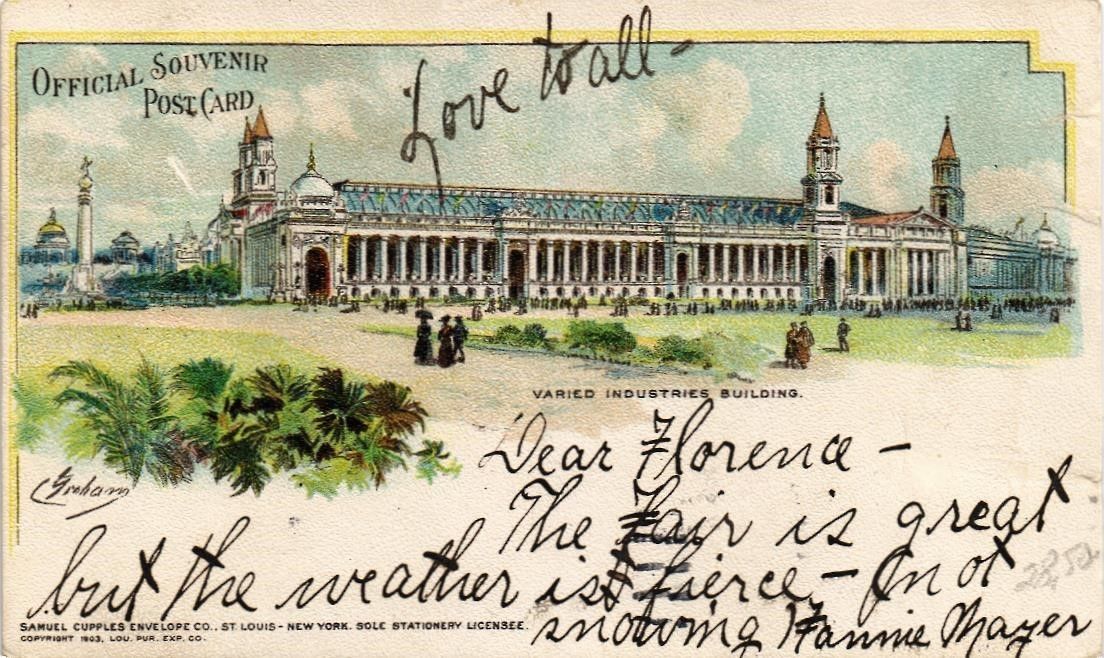 OFFICIAL SOUVENIR
POST CARD
Love to all -
VARIED INDUSTRIES BUILDING.
Dear Florence -
The Fair is great
but the weather is fierce - not
snowing Fannie Mayer
Graham
28,50
SAMUEL CUPPLES ENVELOPE CO., ST. LOUIS - NEW YORK. SOLE STATIONERY LICENSEE.
COPYRIGHT 1903, LOU. PUR. EXP. CO.